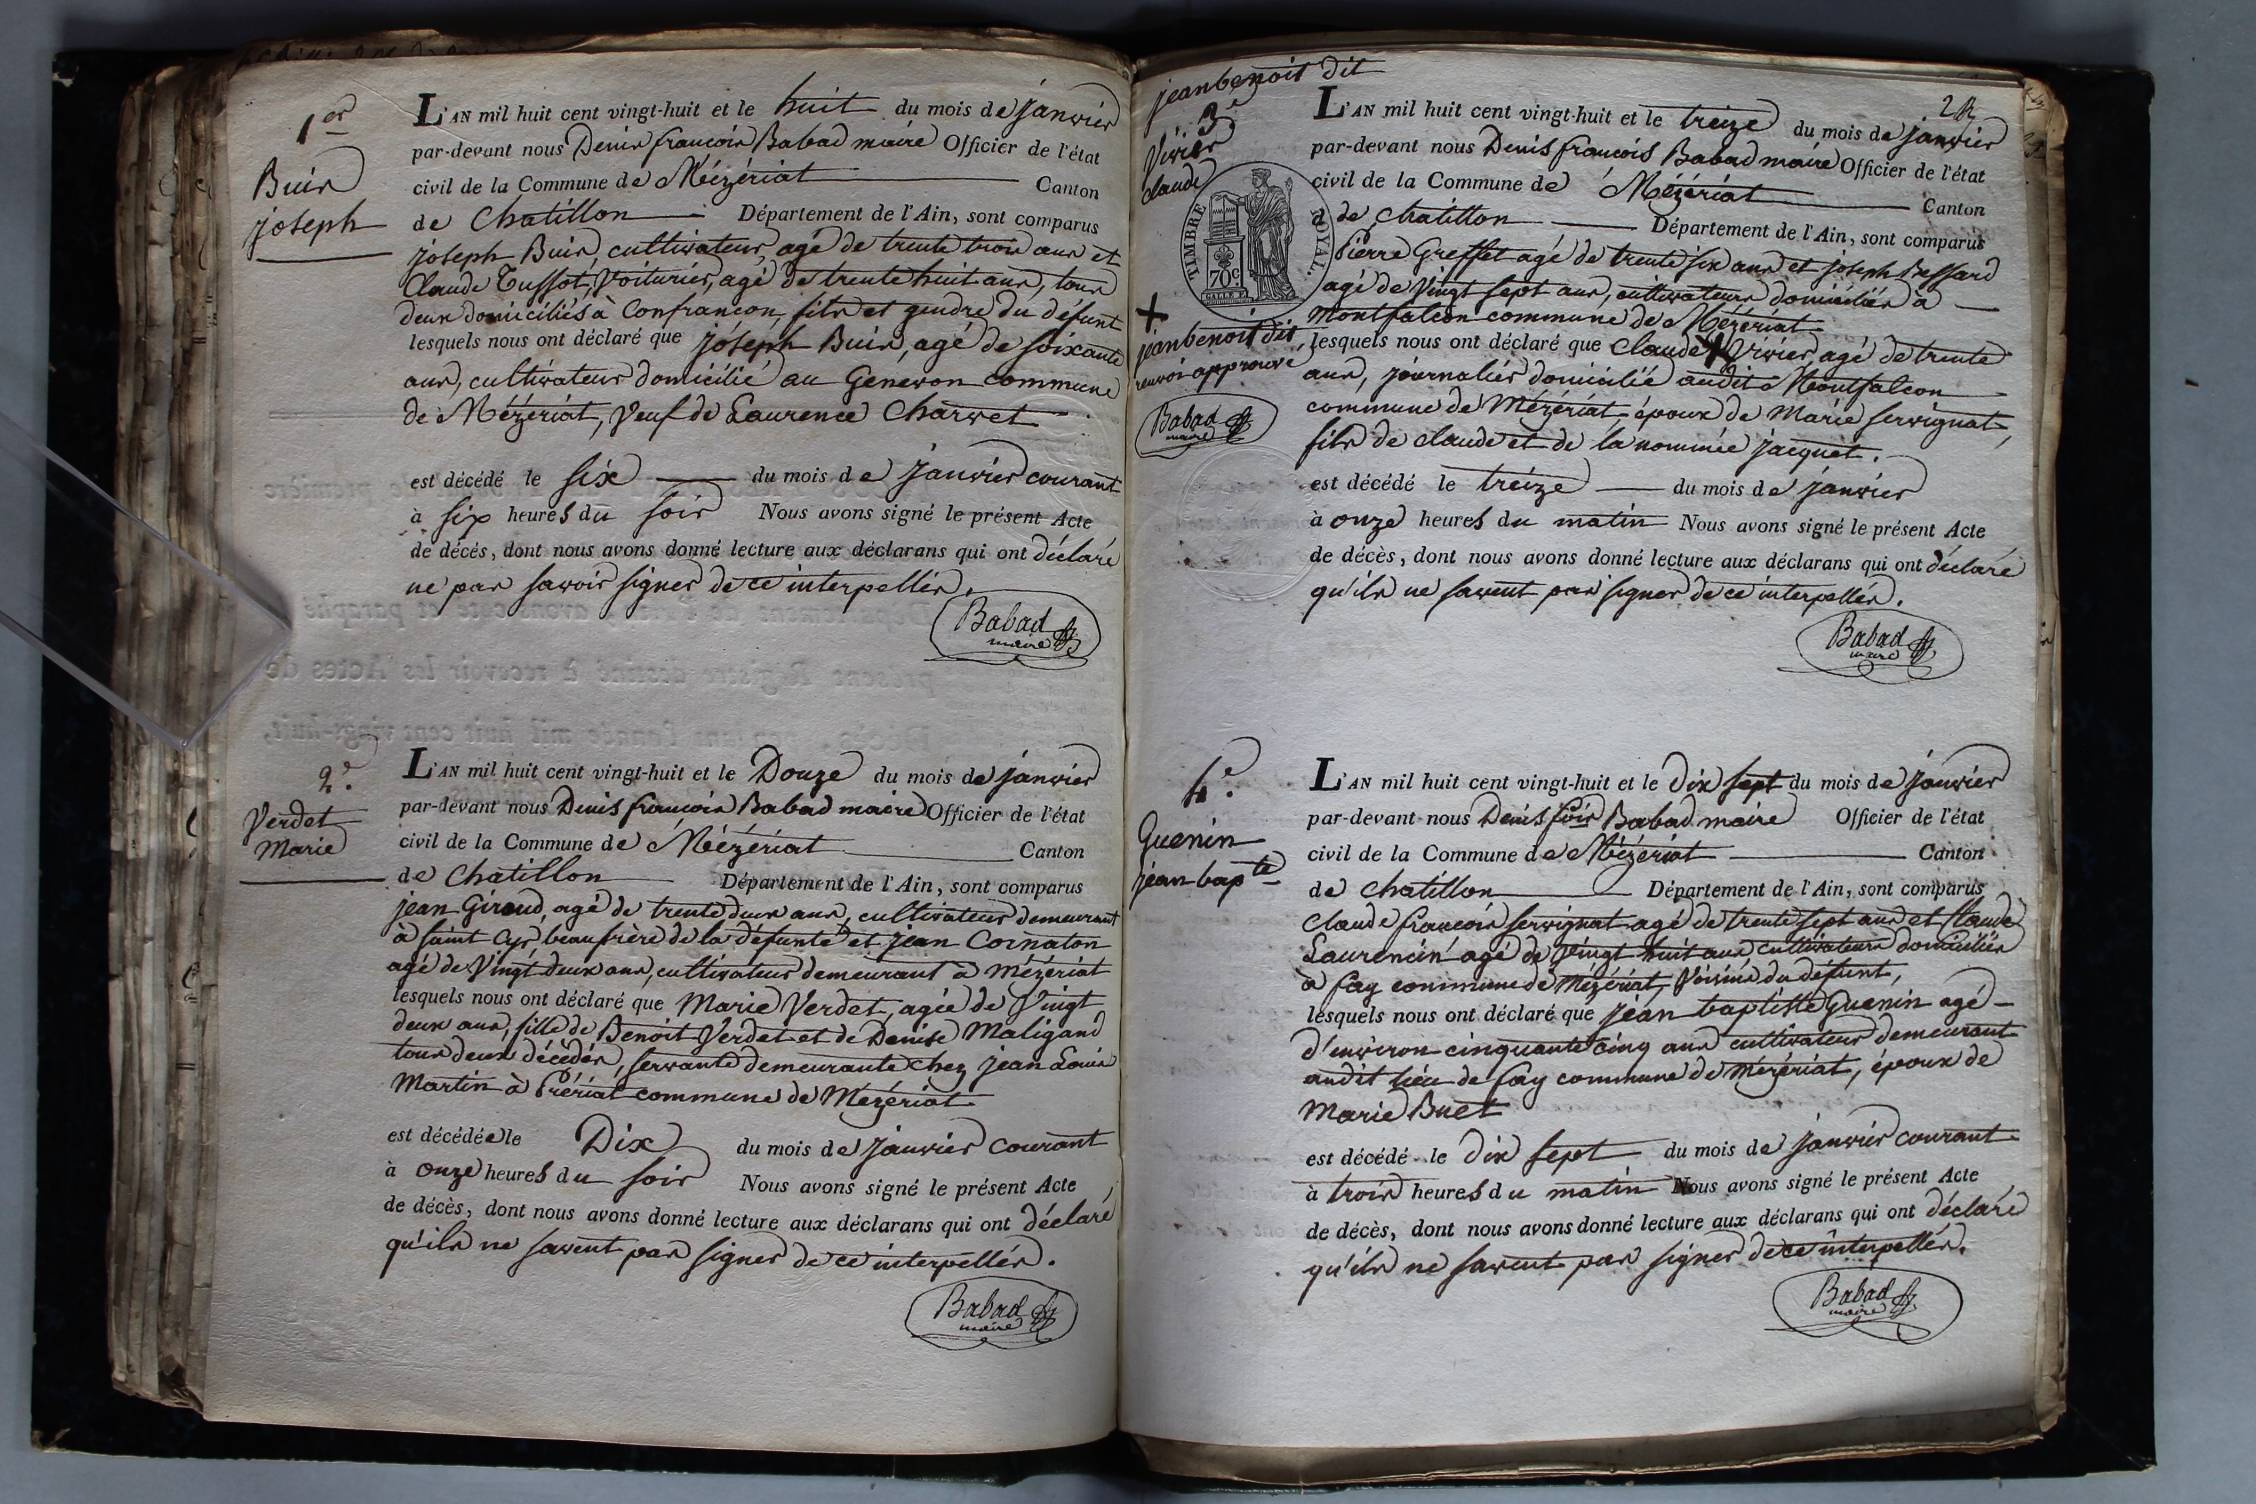 1er
Buis
joseph
L'AN mil huit cent vingt-huit et le huit du mois de janvier
par-devant nous Denis françois Babad maire Officier de l'état
civil de la Commune de Mézériat Canton
de Chatillon Département de l'Ain, sont comparus
joseph Buis, cultivateur, agé de trente trois ans et
Claude Tussot, Voiturier, agé de trente huit ans, tous
deux domiciliés à Confrançon, fils et gendre du défunt
lesquels nous ont déclaré que joseph Buis, agé de soixante
ans, cultivateur domicilié au Generon commune
de Mézériat, Veuf de Laurence Charvet
est décédé le six du mois de janvier courant
à six heures du soir Nous avons signé le présent Acte
de décés, dont nous avons donné lecture aux déclarans qui ont déclaré
ne pas savoir signer de ce interpellés.
Babad
maire
2e.
Verdet
Marie
L'AN mil huit cent vingt-huit et le Douze du mois de janvier
par-devant nous Denis françois Babad maire Officier de l'état
civil de la Commune de Mézériat Canton
de Chatillon Département de l'Ain, sont comparus
jean Giroud, agé de trente deux ans, cultivateur demeurant
à saint Cyr, beaufrère de la défunte, et jean Cornaton
agé de Vingt deux ans, cultivateur demeurant à Mézériat
lesquels nous ont déclaré que Marie Verdet, agée de Vingt
deux ans, fille de Benoit Verdet et de Denise Maligand
tous deux décédés, servante demeurante chez jean Louis
Martin à Prériat commune de Mézériat
est décédée le Dix du mois de janvier courant
à onze heures du soir Nous avons signé le présent Acte
de décès, dont nous avons donné lecture aux déclarans qui ont déclaré
qu'ils ne savent pas signer de ce interpellés.
Babad
maire
jean benoit dit
3e
Vivier
claude
TIMBRE ROYAL.
70c.
2
L'AN mil huit cent vingt-huit et le treize du mois de janvier
par-devant nous Denis françois Babad maire Officier de l'état
civil de la Commune de Mézériat Canton
de Chatillon Département de l'Ain, sont comparus
Pierre Greffet agé de trente six ans et joseph Bessard
agé de Vingt sept ans, cultivateurs domiciliés à
Montfalcon commune de Mézériat
lesquels nous ont déclaré que Claude + Vivier, agé de trente
ans, journalier domicilié audit Montfalcon
commune de Mézériat époux de Marie servignat,
fils de claude et de la nommée jacquet.
est décédé le treize du mois de janvier
à onze heures du matin Nous avons signé le présent Acte
de décès, dont nous avons donné lecture aux déclarans qui ont déclaré
qu'ils ne savent pas signer de ce interpellés.
Babad
maire
+
jean benoit dit
renvoi approuvé
Babad
maire
4e.
Guenin
jean bapte
L'AN mil huit cent vingt-huit et le dix sept du mois de janvier
par-devant nous Denis fois Babad maire Officier de l'état
civil de la Commune de Mézériat Canton
de Chatillon Département de l'Ain, sont comparus
Claude françois servignat agé de trente sept ans et Claude
Laurencin agé de Vingt huit ans cultivateurs domiciliés
à fay commune de Mézériat, Voisins du défunt,
lesquels nous ont déclaré que jean baptiste Guenin agé
d'environ cinquante cinq ans cultivateur demeurant
audit lieu de fay commune de Mézériat, époux de
Marie Buet
est décédé le dix sept du mois de janvier courant
à trois heures du matin Nous avons signé le présent Acte
de décès, dont nous avons donné lecture aux déclarans qui ont déclaré
qu'ils ne savent pas signer de ce interpellés.
Babad
maire